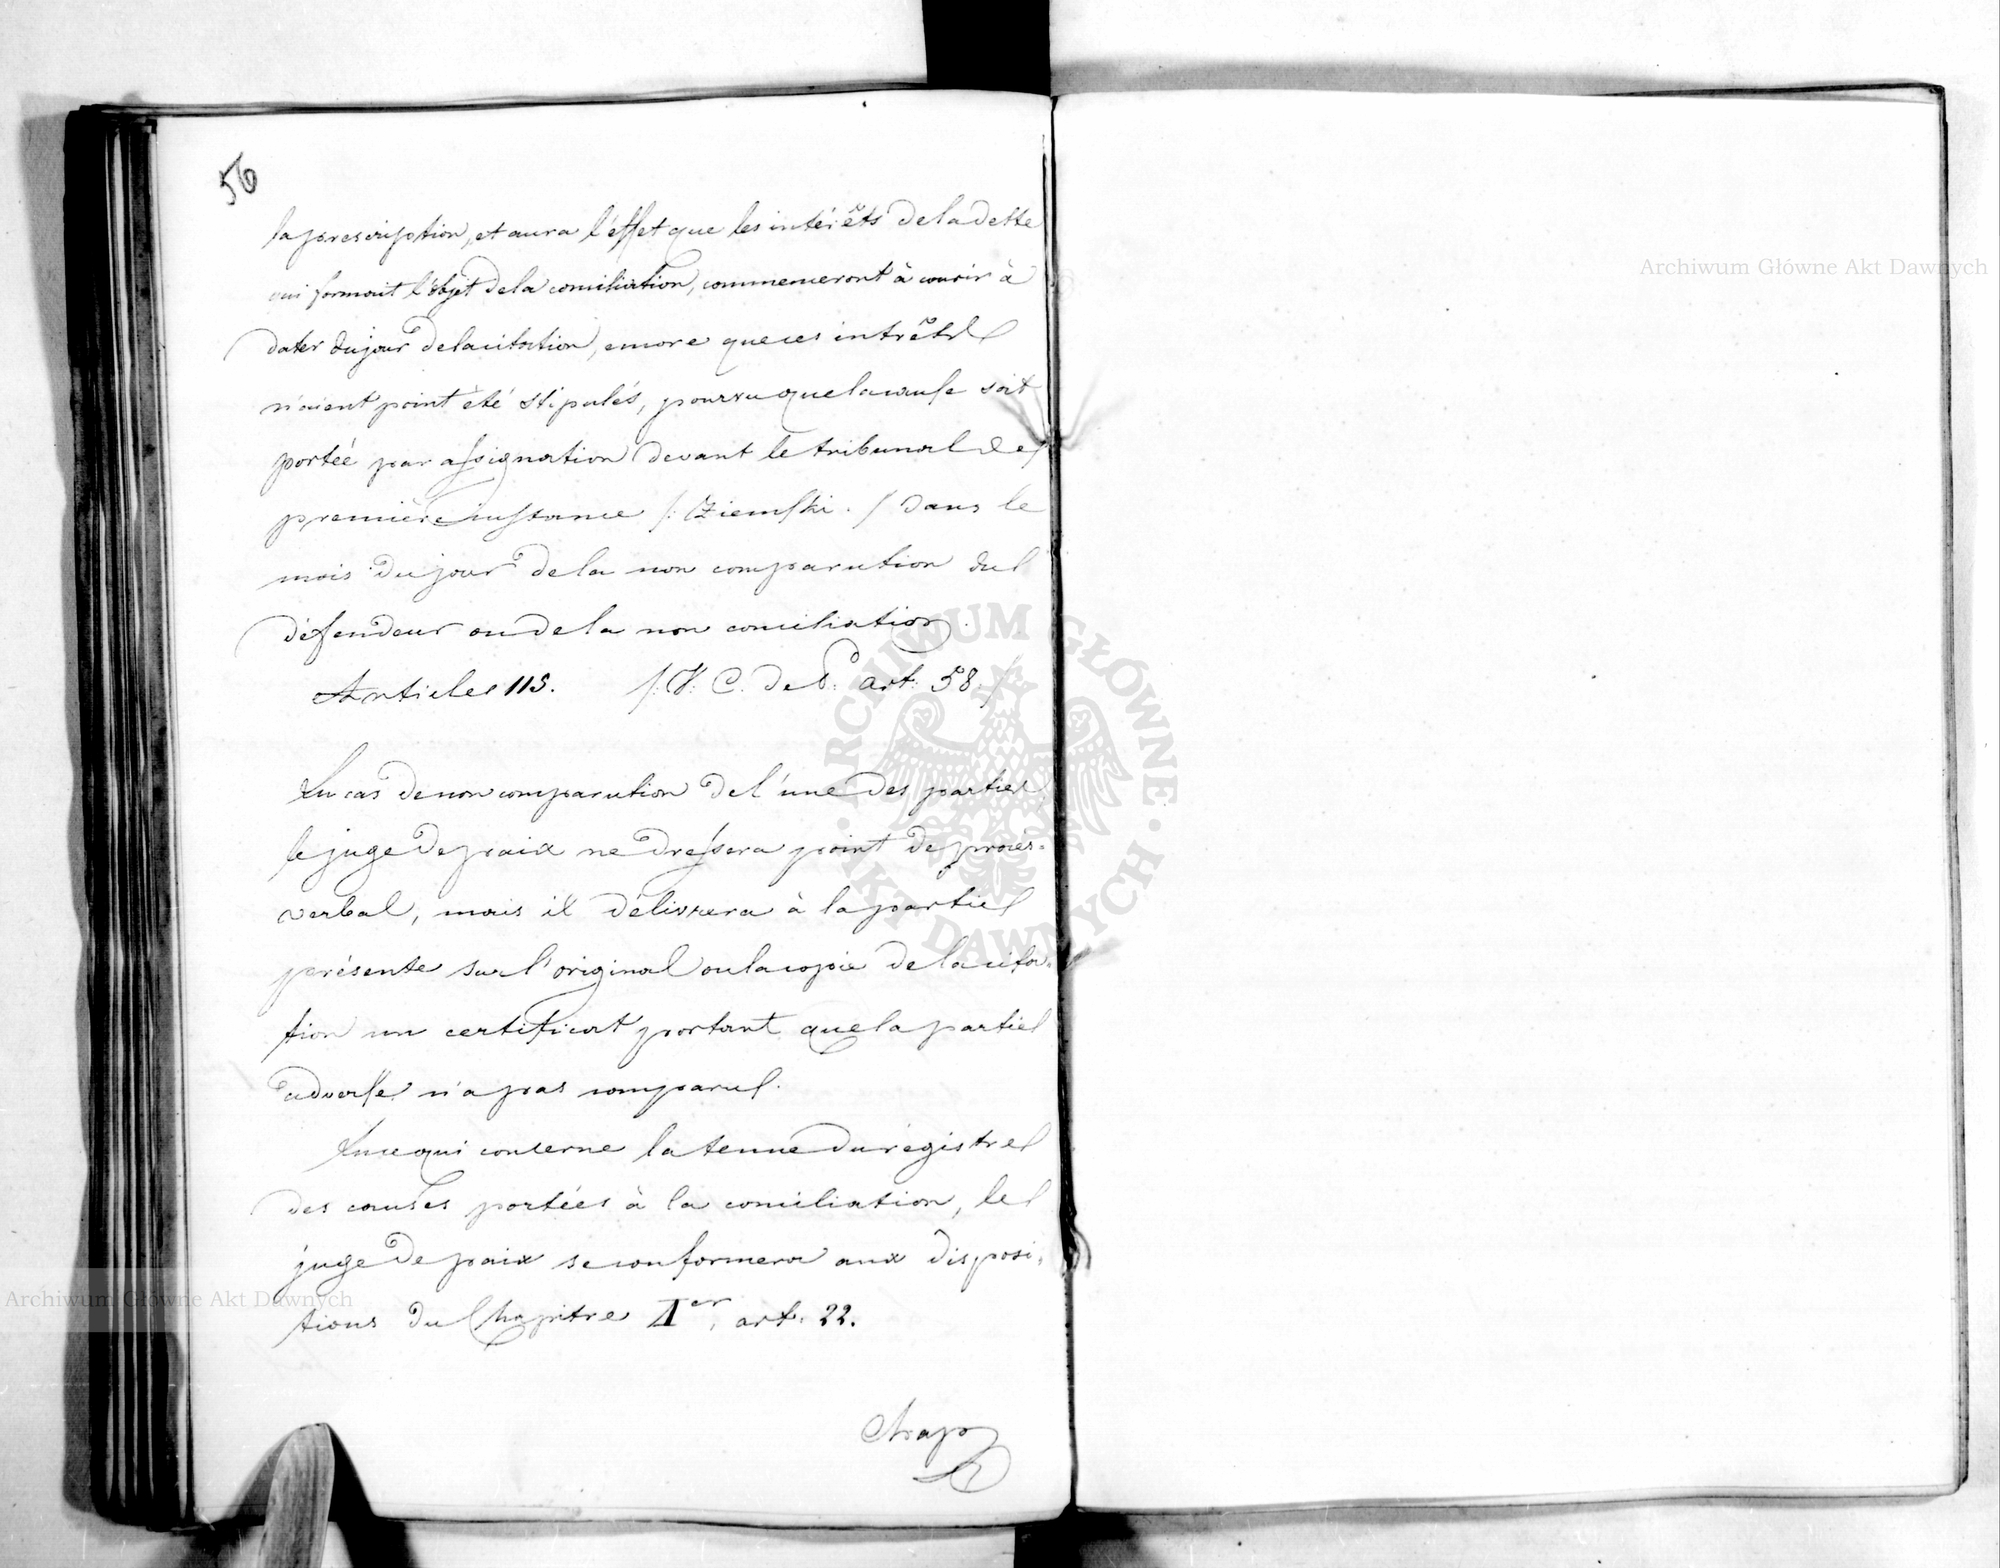 56
la prescription, et aura l'effet que les intérêts de la dette
qui formait l'objet de la conciliation, commenceront à courir à
dater du jour de la citation, encore que ces intrêts
n'aient point été stipulés, pourvu que la cause soit
portée par assignation devant le tribunal de
première instance /: Ziemski :/ dans le
mois du jour de la non comparution du
défendeur ou de la non conciliation.
Article 115. /: V: C. de P: art: 58 :/
En cas de non comparution de l'une des parties
le juge de paix ne dressera point de procès-
verbal, mais il délivrera à la partie
présente sur l'original ou la copie de la cita-
tion un certificat portant que la partie
adverse n'a pas comparu.
En ce qui concerne la tenue du régistre
des causes portées à la conciliation, le
juge de paix se conformera aux disposi-
tions du Chapitre Ier, art. 22.
Chap
Archiwum Główne Akt Dawnych
Archiwum Główne Akt Dawnych
ARCHIWUM GŁÓWNE · AKT DAWNYCH ·